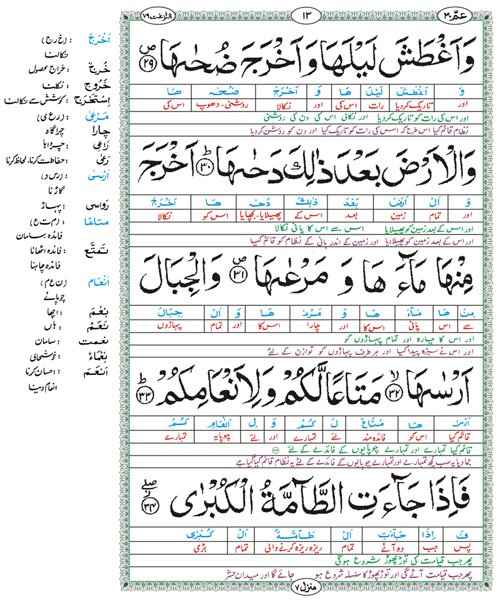 عمّ ٣٠
١٣
النّٰزعٰت ٧٩
وَاَغْطَشَ لَيْلَهَا وَاَخْرَجَ ضُحٰىهَا ﴿٢٩﴾
وَ اَغْطَشَ لَيْلَ هَا وَ اَخْرَجَ ضُحٰ هَا
اور تاریک کردیا رات اس کی اور نکالا روشنی۔ دھوپ اس کی
اور اس کی رات کو تاریک کردیا اور نکالی اس کی دن کی روشنی
نظام قائم کیا اس طرح کہ اس کی رات کو تاریک کیا اور دن کو روشن کردیا
وَالْاَرْضَ بَعْدَ ذٰلِكَ دَحٰىهَا ﴿٣٠﴾ اَخْرَجَ
وَ الْ اَرْضَ بَعْدَ ذٰلِكَ دَحٰ هَا اَخْرَجَ
اور تمام زمین بعد اس کے پھیلایا۔ بچھایا اس کو نکالا
اور اس کے بعد زمین کو پھیلایا اس سے اس کا پانی نکالا
اور اس کے بعد زمین کو پھیلایا اور زمین کے اندر پانی کے نظام کو قائم کیا
مِنْهَا مَآءَهَا وَمَرْعٰىهَا ﴿٣١﴾ وَالْجِبَالَ
مِنْ هَا مَآءَ هَا وَ مَرْعٰ هَا وَ الْ جِبَالَ
سے اس پانی اس کا اور چارا اس کا اور تمام پہاڑوں
اور اس کا چارہ اور تمام پہاڑوں کو
اور اس نے سبزہ پیدا کیا اور ہر طرف پہاڑوں کو توازن کے لئے
اَرْسٰىهَا ﴿٣٢﴾ مَتَاعًا لَّكُمْ وَلِاَنْعَامِكُمْ ﴿٣٣﴾
اَرْسٰ هَا مَتَاعً لَ كُمْ وَ لِ اَنْعَامِ كُمْ
قائم کیا اس کو فائدہ مند لئے تمہارے اور لئے چوپایہ تمہارے
قائم کیا اور تمہارے اور تمہارے چوپایوں کے فائدے کے لئے
جمادیا یہ سب کچھ تمہارے اور تمہارے چوپایوں کے فائدے کے لئے یہ نظام قائم کیا گیا ہے
فَاِذَا جَآءَتِ الطَّآمَّةُ الْكُبْرٰى ﴿٣٤﴾
فَ اِذَا جَآءَتِ الْ طَآمَّةُ الْ كُبْرٰى
پس جب وہ آئے تمام ریزہ ریزہ کرنے والی تمام بڑی
پھر جب قیامت کی توڑ پھوڑ شروع ہوگی
پھر جب قیامت آئے گی اور توڑ پھوڑ کا سلسلہ شروع ہو جائے گا اور میدان حشر
منزل ٧
اَخْرَجَ (خ ر ج)
نکالنا
خَرْجٌ : خراج محصول
خُرُوْجٌ : نکلنا
اِسْتَخْرَجَ : کوشش سے نکالنا
مَرْعٰى (ر ع ی)
چارا : چراگاہ
رَاعِىْ : چرواہا
رَعٰى : حفاظت کرنا، لحاظ کرنا
اَرْسٰى (ر س و)
گاڑنا
رَوَاسِىَ : پہاڑ
مَتَاعًا (م ت ع)
فائدہ، سامان
تَمَتَّعَ : فائدہ اٹھانا
فائدہ چاہنا
اَنْعَام (ن ع م)
چوپائے
نِعْمَ : اچھا
نَعَمْ : ہاں
نعمت : سامان
نَعْمَاءُ : خوشحالی
اَنْعَمَ : احسان کرنا
انعام دینا